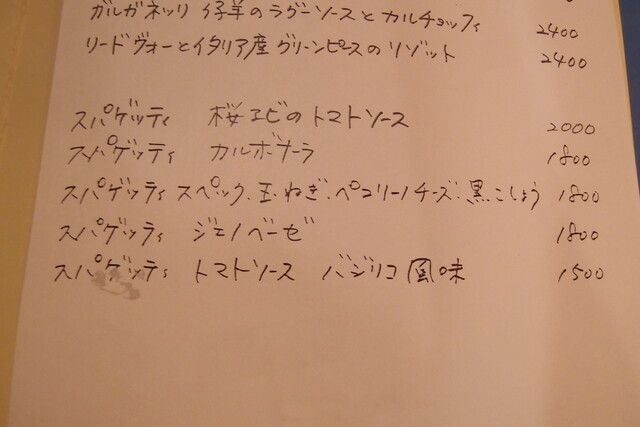 ガルガネッリ 仔羊のラグーソースとカルチョッフィ 2400
リードヴォーとイタリア産グリーンピースのリゾット 2400
スパゲッティ 桜エビのトマトソース 2000
スパゲッティ カルボナーラ 1800
スパゲッティ スペック、玉ねぎ、ペコリーノチーズ、黒こしょう 1800
スパゲッティ ジェノベーゼ 1800
スパゲッティ トマトソース バジリコ風味 1500